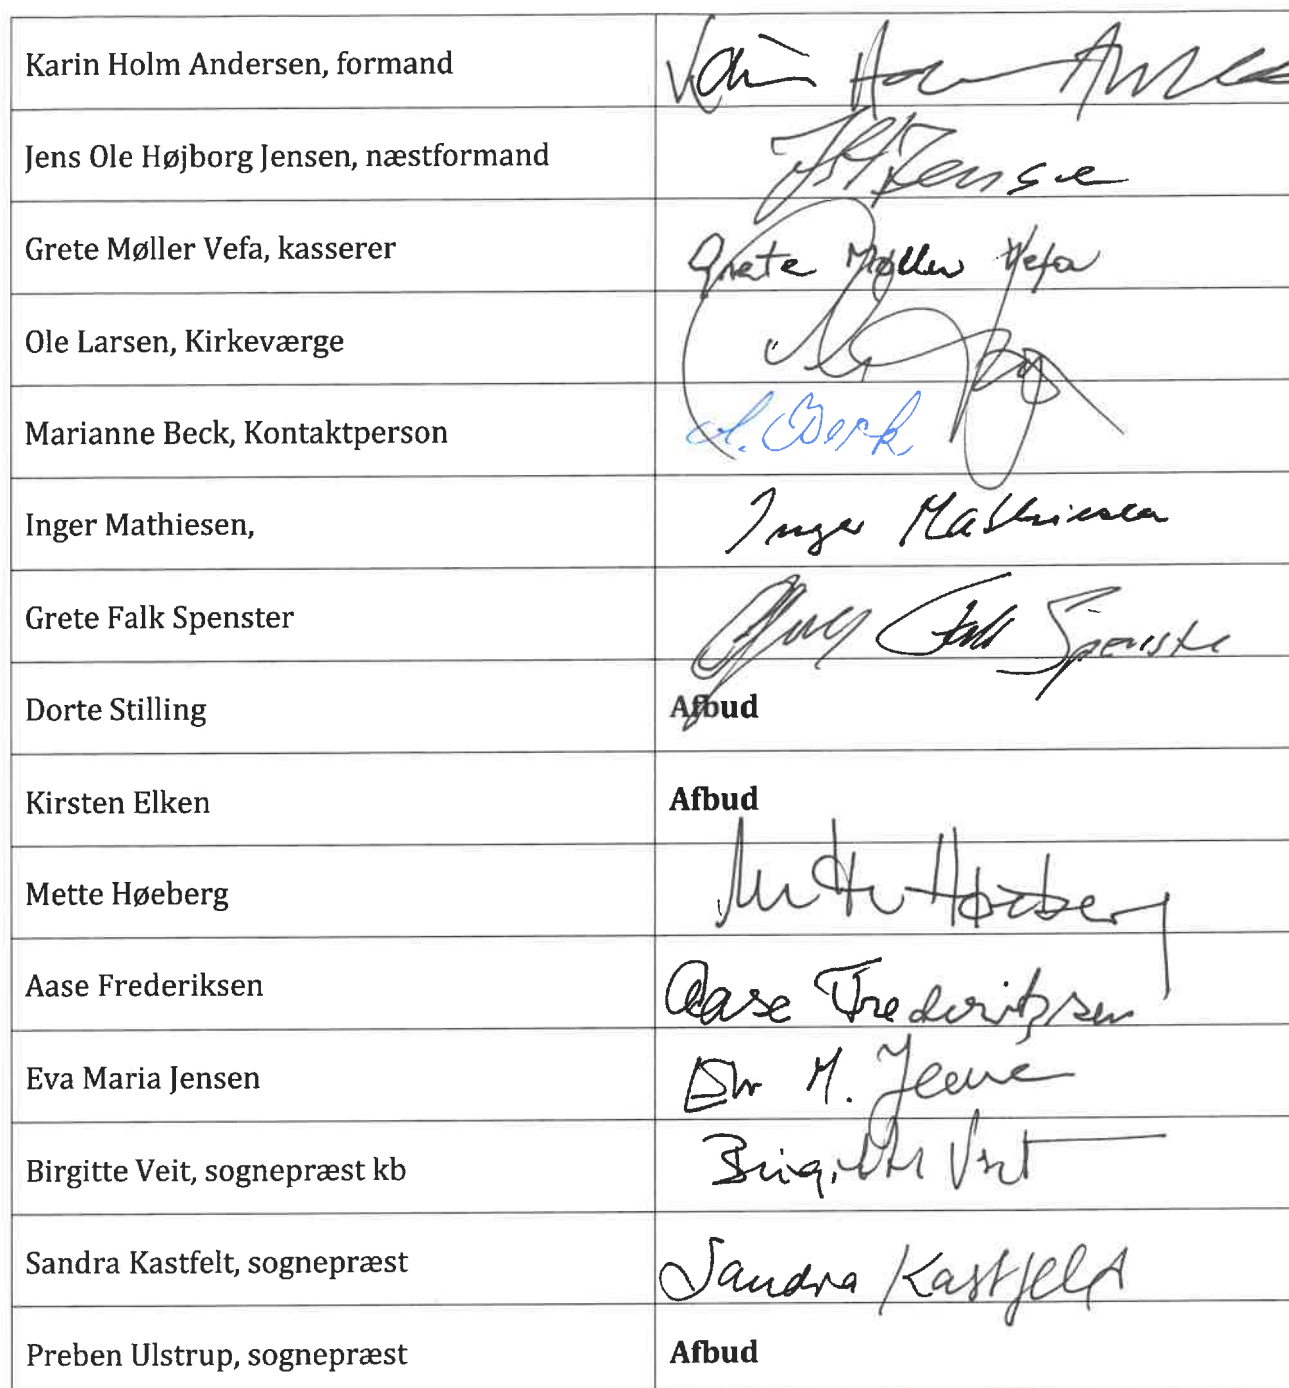 Karin Holm Andersen, formand
Jens Ole Højborg Jensen, næstformand
Jensen
Grete Møller Vefa, kasserer
Grete Møller Vefa
Ole Larsen, Kirkeværge
Marianne Beck, Kontaktperson
M. Beck
Inger Mathiesen,
Inger Mathiesen
Grete Falk Spenster
Falk Spenster
Dorte Stilling
Afbud
Kirsten Elken
Afbud
Mette Høeberg
Mette Høeberg
Aase Frederiksen
Aase Frederiksen
Eva Maria Jensen
M.
Birgitte Veit, sognepræst kb
Birgitte Veit
Sandra Kastfelt, sognepræst
Sandra Kastfelt
Preben Ulstrup, sognepræst
Afbud